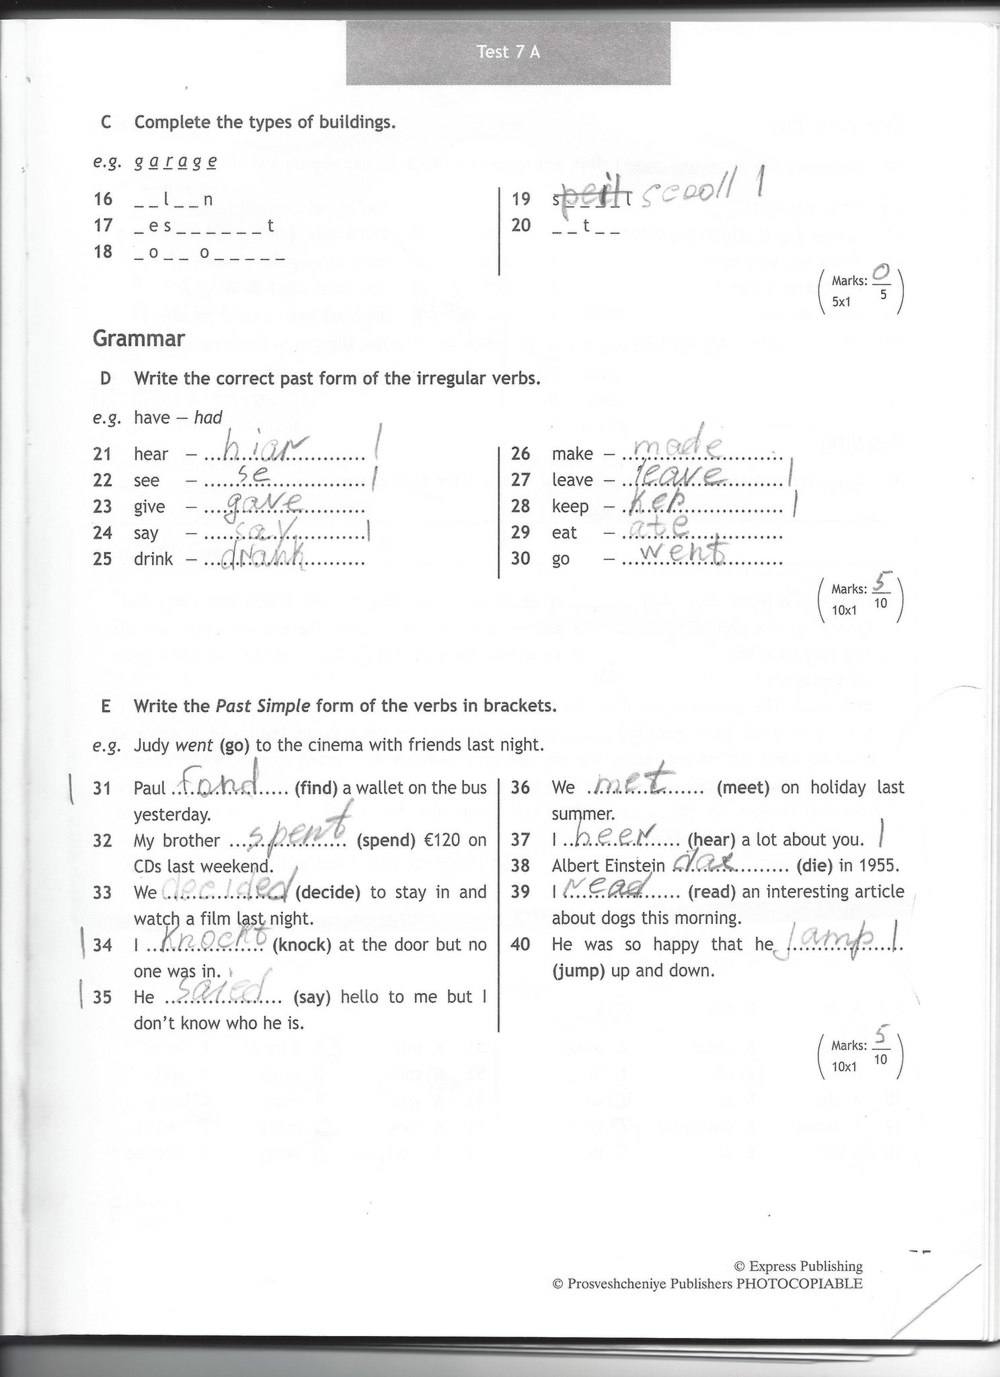 Test 7 A
C Complete the types of buildings.
e.g. g a r a g e
16 _ _ l _ _ n
17 _ e s _ _ _ _ _ _ t
18 _ o _ _ o _ _ _ _ _
19 s t scooll 1
20 _ _ t _ _
Marks: 0
5x1 5
Grammar
D Write the correct past form of the irregular verbs.
e.g. have – had
21 hear – hiar
22 see – se
23 give – gave
24 say – say
25 drink – drank
26 make – made
27 leave – leave
28 keep – kep
29 eat – ate
30 go – went
Marks: 5
10x1 10
E Write the Past Simple form of the verbs in brackets.
e.g. Judy went (go) to the cinema with friends last night.
31 Paul fond (find) a wallet on the bus
yesterday.
32 My brother spent (spend) €120 on
CDs last weekend.
33 We decided (decide) to stay in and
watch a film last night.
34 I knockt (knock) at the door but no
one was in.
35 He saied (say) hello to me but I
don't know who he is.
36 We met (meet) on holiday last
summer.
37 I heer (hear) a lot about you.
38 Albert Einstein (die) in 1955.
39 I read (read) an interesting article
about dogs this morning.
40 He was so happy that he jamp
(jump) up and down.
Marks: 5
10x1 10
© Express Publishing
© Prosveshcheniye Publishers PHOTOCOPIABLE